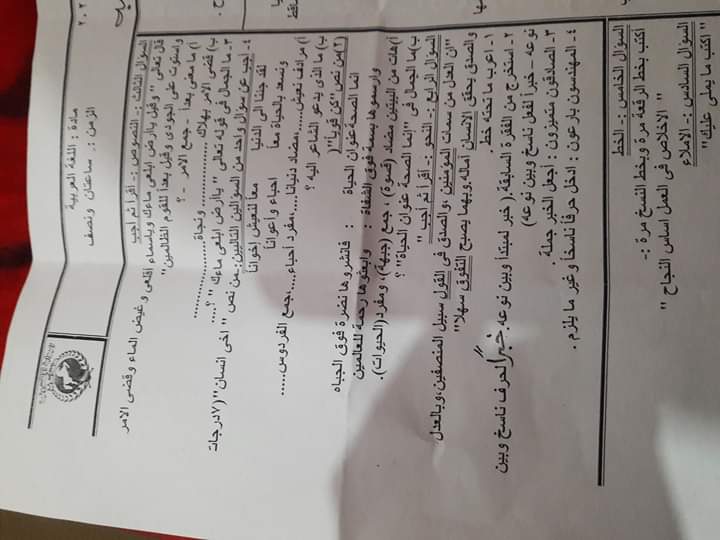 مادة : اللغة العربية
الزمن :- ساعتان ونصف
السؤال الثالث :- النصوص :- أقرأ ثم أجب
قال تعالى " وقيل يأرض ابلعى ماءك وياسماء أقلعى وغيض الماء وقضى الامر
واستوت على الجودى وقيل بعداً للقوم الظالمين"
أ) ما معنى بعداً - جمع الامر - ؟
ب) قضى الامر بهلاك .................. ونجاة ..................
٣- ما الجمال فى قوله تعالى " ياأرض ابلعى ماءك "؟....
٤- أجب عن سؤال واحد من السؤالين التاليين:- من نص " اخى انسان "(٧درجات
لقد جئنا الى الدنيا معا لنعيش إخوانا
ونسعد بالحياة معاً احباء وأعوانا
أ) مرادف نعيش......،مضاد دنيانا ....،مفرد أحباء....،جمع الفردوس.....
ب) ما الذى يدعو الشاعر اليه ؟
(٢)من نص "كن قوياً"(
انما الصحة عنوان الحياة : فانشروها نضرة فوق الجباه
وارسموها بسمة فوق الشفاة : وابعثوها رحمة للعالمين
أ)هات من البيتين مضاد (قسوة) ، جمع (جبهة)، ومفرد(الحيوات).
ب)ما الجمال فى "إنما الصحة عنوان الحياة"؟
السؤال الرابع :- النحو :- أقرأ ثم أجب "
"ان العدل من سمات المؤمنين ،والصدق فى القول سبيل المنصفين،وبالعدل
والصدق يحقق الانسان أماله،وبهما يصبح التفوق سهلا"
١- اعرب ما تحته خط
٢- استخرج من الفقرة السابقة،( خبر لمبتدأ وبين نوعه، خبراً لحرف ناسخ وبين
نوعه - خبراً لفعل ناسخ وبين نوعه)
٣- الصادقون متميزون : أجعل الخبر جملة.
٤- المهندسون بارعون : ادخل حرفاً ناسخاً وغير ما يلزم .
السؤال الخامس :- الخط
اكتب بخط الرقعة مرة وبخط النسخ مرة :-
" الاخلاص فى العمل اساس النجاح "
السؤال السادس :- الاملاء
" اكتب ما يملى عليك"